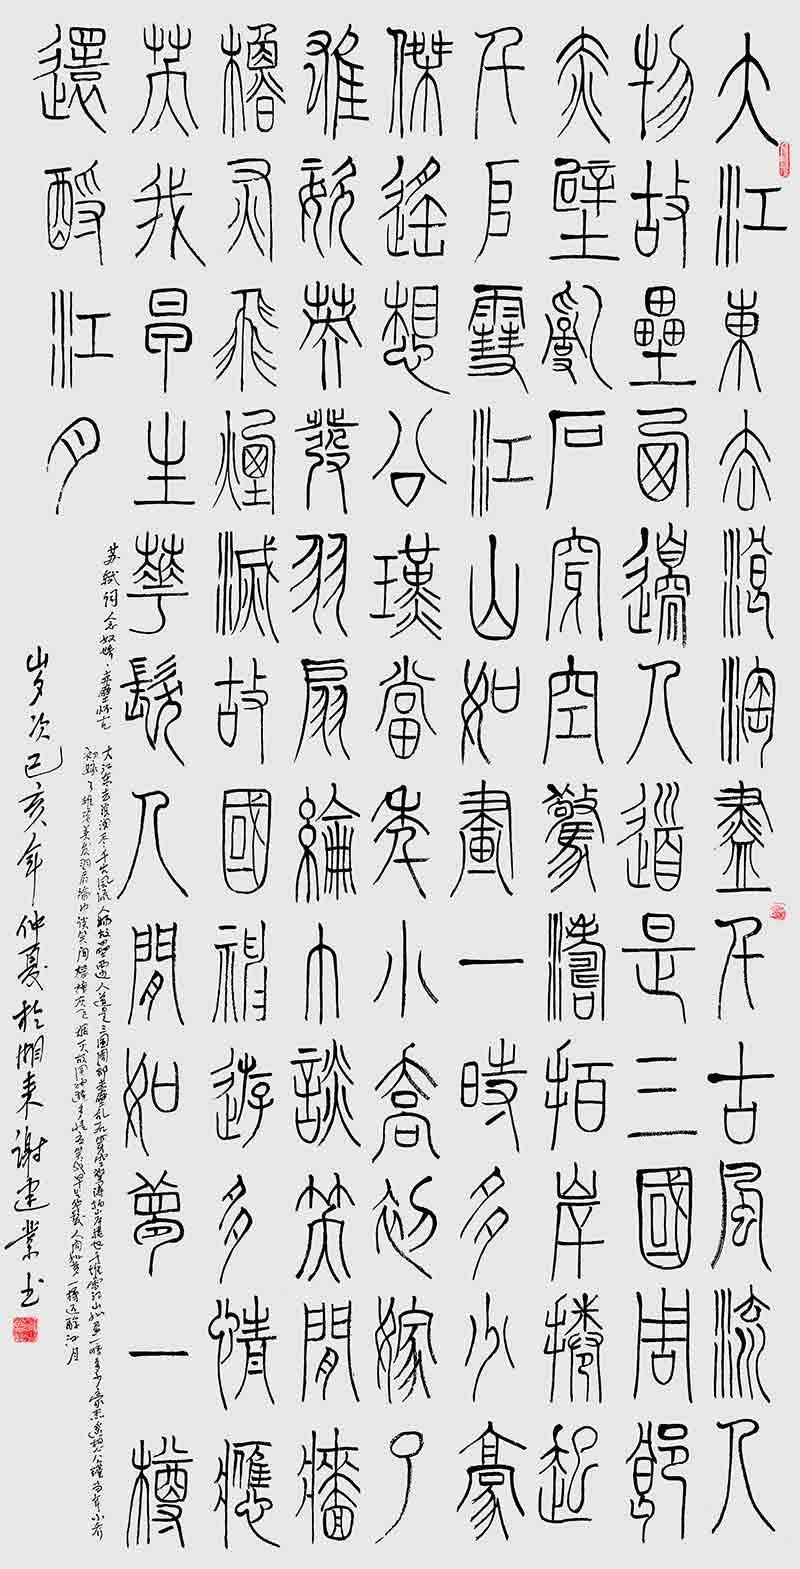 大江東去浪淘盡千古風流人
物故壘西邊人道是三國周郎
赤壁亂石穿空驚濤拍岸捲起
千堆雪江山如畫一時多少豪
傑遙想公瑾當年小喬初嫁了
雄姿英發羽扇綸巾談笑間檣
櫓灰飛煙滅故國神遊多情應
笑我早生華髮人間如夢一樽
還酹江月
苏轼词念奴娇·赤壁怀古
大江东去浪淘尽千古风流人物故垒西边人道是三国周郎赤壁乱石穿空惊涛拍岸捲起千堆雪江山如画一时多少豪杰遥想公瑾当年小乔
初嫁了雄姿英发羽扇纶巾谈笑间樯橹灰飞烟灭故国神游多情应笑我早生华发人间如梦一樽还酹江月
岁次己亥年仲夏於湘耒谢建业书